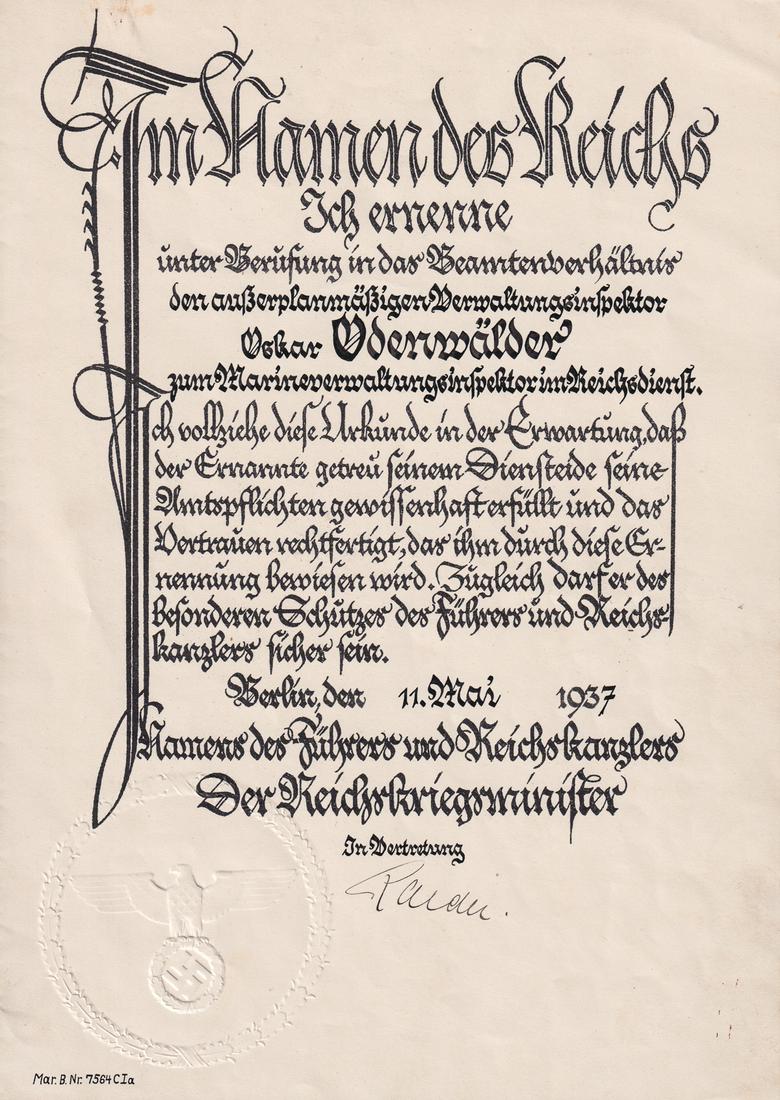 Im Namen des Reichs
Ich ernenne
unter Berufung in das Beamtenverhältnis
den außerplanmäßigen Verwaltungsinspektor
Oskar Odenwälder
zum Marineverwaltungsinspektor im Reichsdienst.
Ich vollziehe diese Urkunde in der Erwartung, daß
der Ernannte getreu seinem Diensteide seine
Amtspflichten gewissenhaft erfüllt und das
Vertrauen rechtfertigt, das ihm durch diese Er-
nennung bewiesen wird. Zugleich darf er des
besonderen Schutzes des Führers und Reichs-
kanzlers sicher sein.
Berlin, den 11. Mai 1937
Namens des Führers und Reichskanzlers
Der Reichskriegsminister
In Vertretung
Raeder.
Mar. B. Nr. 7564 C I a